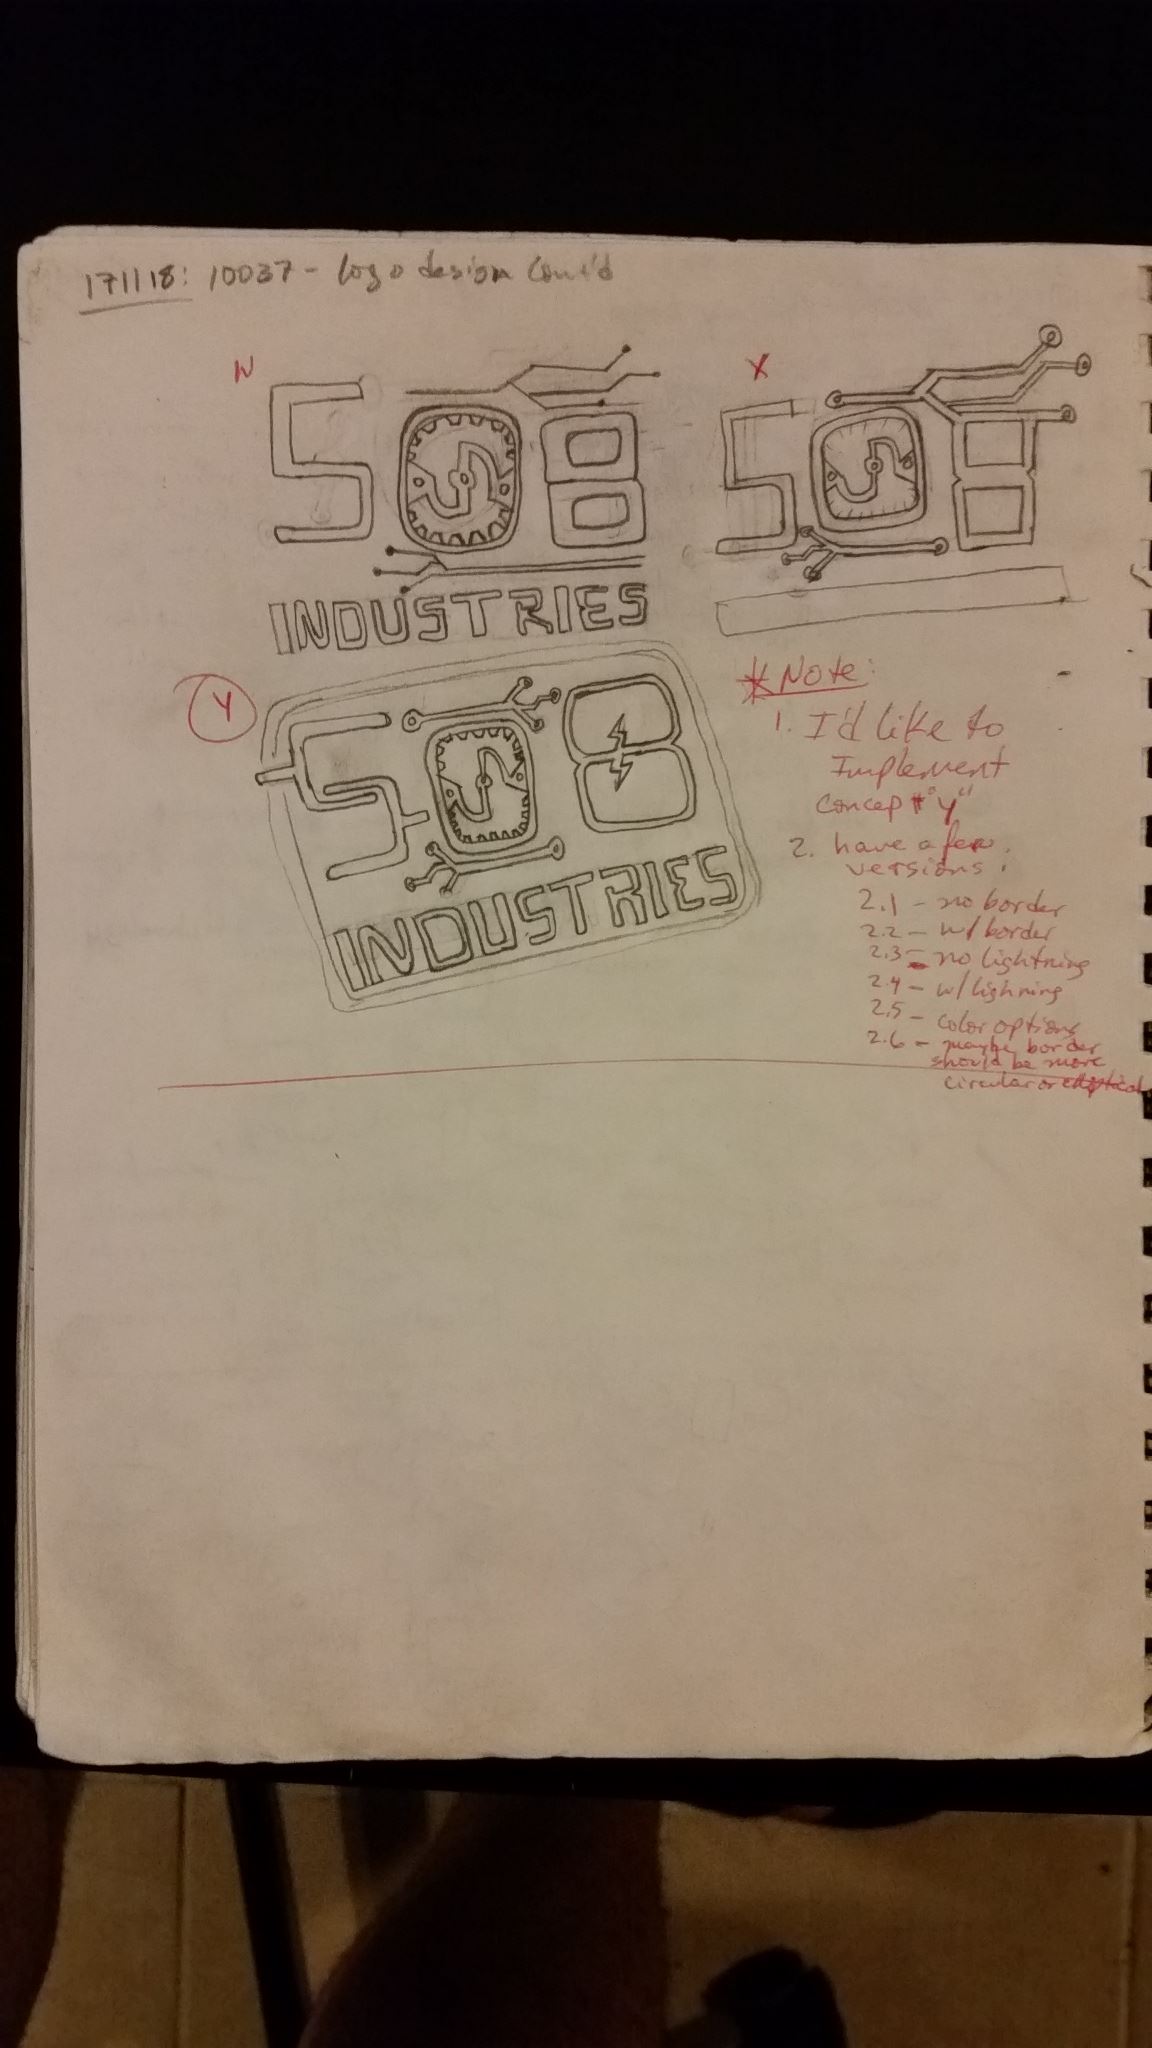 171118: 10037 - Logo design Cont'd
W
X
508
INDUSTRIES
Y
508
INDUSTRIES
* Note:
1. I'd like to
Implement
Concept "Y"
2. have a few
versions:
2.1 - no border
2.2 - w/ border
2.3 - no lightning
2.4 - w/ lighning
2.5 - color options
2.6 - maybe border
should be more
circular or elliptical